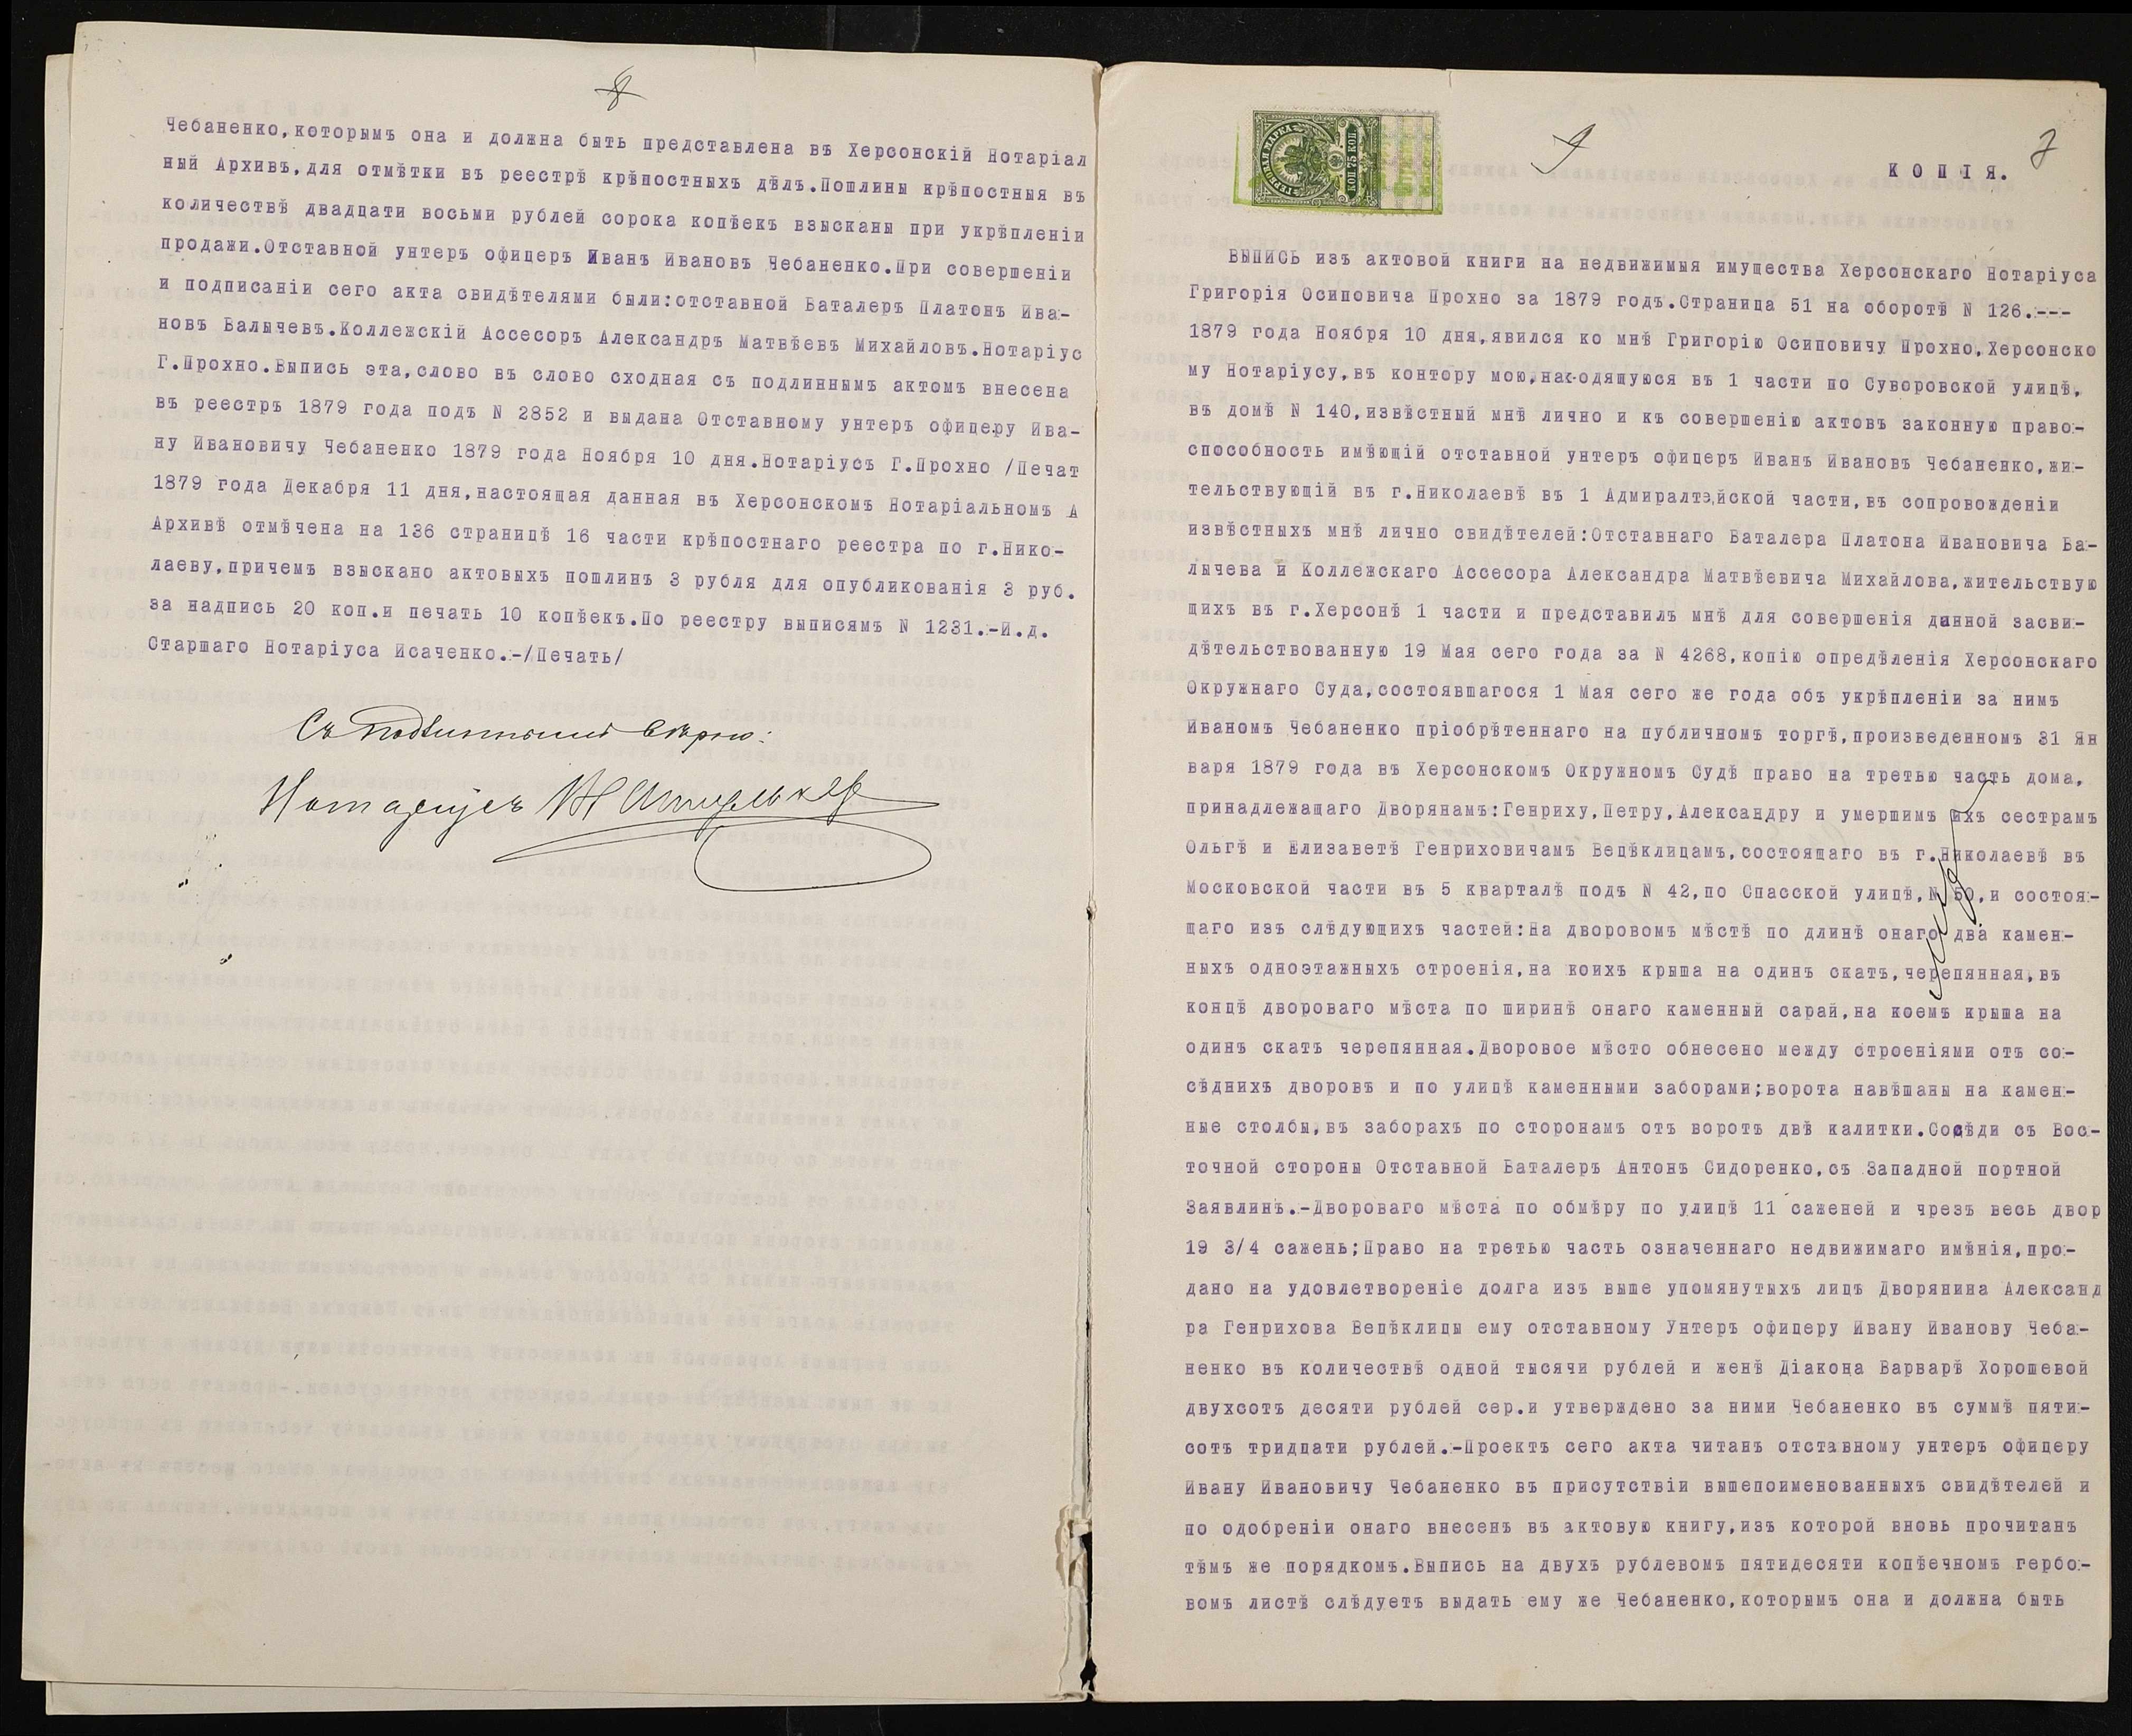 8
Чебаненко,которымъ она и должна быть представлена въ Херсонскій Нотаріал
ный Архивъ,для отмѣтки въ реестрѣ крѣпостныхъ дѣлъ.Пошлины крѣпостныя въ
количествѣ двадцати восьми рублей сорока копѣекъ взысканы при укрѣпленіи
продажи.Отставной унтеръ офицеръ Иванъ Ивановъ Чебаненко.При совершеніи
и подписаніи сего акта свидѣтелями были:отставной Баталеръ Платонъ Ива-
новъ Валычевъ.Коллежскій Ассесоръ Александръ Матвѣевъ Михайловъ.Нотаріус
Г.Прохно.Выпись эта,слово въ слово сходная съ подлиннымъ актомъ внесена
въ реестръ 1879 года подъ N 2852 и выдана Отставному унтеръ офицеру Ива-
ну Ивановичу Чебаненко 1879 года Ноября 10 дня.Нотаріусъ Г.Прохно /Печат
1879 года Декабря 11 дня,настоящая данная въ Херсонскомъ Нотаріальномъ А
Архивѣ отмѣчена на 136 страницѣ 16 части крѣпостнаго реестра по г.Нико-
лаеву,причемъ взыскано актовыхъ пошлинъ 3 рубля для опубликованія 3 руб.
за надпись 20 коп.и печать 10 копѣекъ.По реестру выписямъ N 1231.-И.д.
Старшаго Нотаріуса Исаченко.-/Печать/
Съ подлиннымъ вѣрно:
Нотаріусъ
ГЕРБОВАЯ МАРКА
75 КОП
9
7
КОПІЯ.
ВЫПИСЬ изъ актовой книги на недвижимыя имущества Херсонскаго Нотаріуса
Григорія Осиповича Прохно за 1879 годъ.Страница 51 на оборотѣ N 126.---
1879 года Ноября 10 дня,явился ко мнѣ Григорію Осиповичу Прохно,Херсонско
му Нотаріусу,въ контору мою,находящуюся въ 1 части по Суворовской улицѣ,
въ домѣ N 140,извѣстный мнѣ лично и къ совершенію актовъ законную право-
способность имѣющій отставной унтеръ офицеръ Иванъ Ивановъ Чебаненко,жи-
тельствующій въ г.Николаевѣ въ 1 Адмиралтейской части,въ сопровожденіи
извѣстныхъ мнѣ лично свидѣтелей:Отставнаго Баталера Платона Ивановича Ва-
лычева и Коллежскаго Ассесора Александра Матвѣевича Михайлова,жительствую
щихъ въ г.Херсонѣ 1 части и представилъ мнѣ для совершенія данной засви-
дѣтельствованную 19 Мая сего года за N 4268,копію опредѣленія Херсонскаго
Окружнаго Суда,состоявшагося 1 Мая сего же года объ укрѣпленіи за нимъ
Иваномъ Чебаненко пріобрѣтеннаго на публичномъ торгѣ,произведенномъ 31 Ян
варя 1879 года въ Херсонскомъ Окружномъ Судѣ право на третью часть дома,
принадлежащаго Дворянамъ:Генриху,Петру,Александру и умершимъ ихъ сестрамъ
Ольгѣ и Елизаветѣ Генриховичамъ Вецѣклицамъ,состоящаго въ г.Николаевѣ въ
Московской части въ 5 кварталѣ подъ N 42,по Спасской улицѣ,N 50,и состоя-
щаго изъ слѣдующихъ частей:На дворовомъ мѣстѣ по длинѣ онаго два камен-
ныхъ одноэтажныхъ строенія,на коихъ крыша на одинъ скатъ,черепянная,въ
концѣ двороваго мѣста по ширинѣ онаго каменный сарай,на коемъ крыша на
одинъ скатъ черепянная.Дворовое мѣсто обнесено между строеніями отъ со-
сѣднихъ дворовъ и по улицѣ каменными заборами;ворота навѣшаны на камен-
ные столбы,въ заборахъ по сторонамъ отъ воротъ двѣ калитки.Сосѣди съ Вос-
точной стороны Отставной Баталеръ Антонъ Сидоренко,съ Западной портной
Заявлинъ.-Двороваго мѣста по обмѣру по улицѣ 11 саженей и чрезъ весь двор
19 3/4 сажень;Право на третью часть означеннаго недвижимаго имѣнія,про-
дано на удовлетвореніе долга изъ выше упомянутыхъ лицъ Дворянина Александ
ра Генрихова Вецѣклицы ему отставному Унтеръ офицеру Ивану Иванову Чеба-
ненко въ количествѣ одной тысячи рублей и женѣ Діакона Варварѣ Хорошевой
двухсотъ десяти рублей сер.и утверждено за ними Чебаненко въ суммѣ пяти-
сотъ тридцати рублей.-Проектъ сего акта читанъ отставному унтеръ офицеру
Ивану Ивановичу Чебаненко въ присутствіи вышепоименованныхъ свидѣтелей и
по одобреніи онаго внесенъ въ актовую книгу,изъ которой вновь прочитанъ
тѣмъ же порядкомъ.Выпись на двухъ рублевомъ пятидесяти копѣечномъ гербо-
вомъ листѣ слѣдуетъ выдать ему же Чебаненко,которымъ она и должна быть